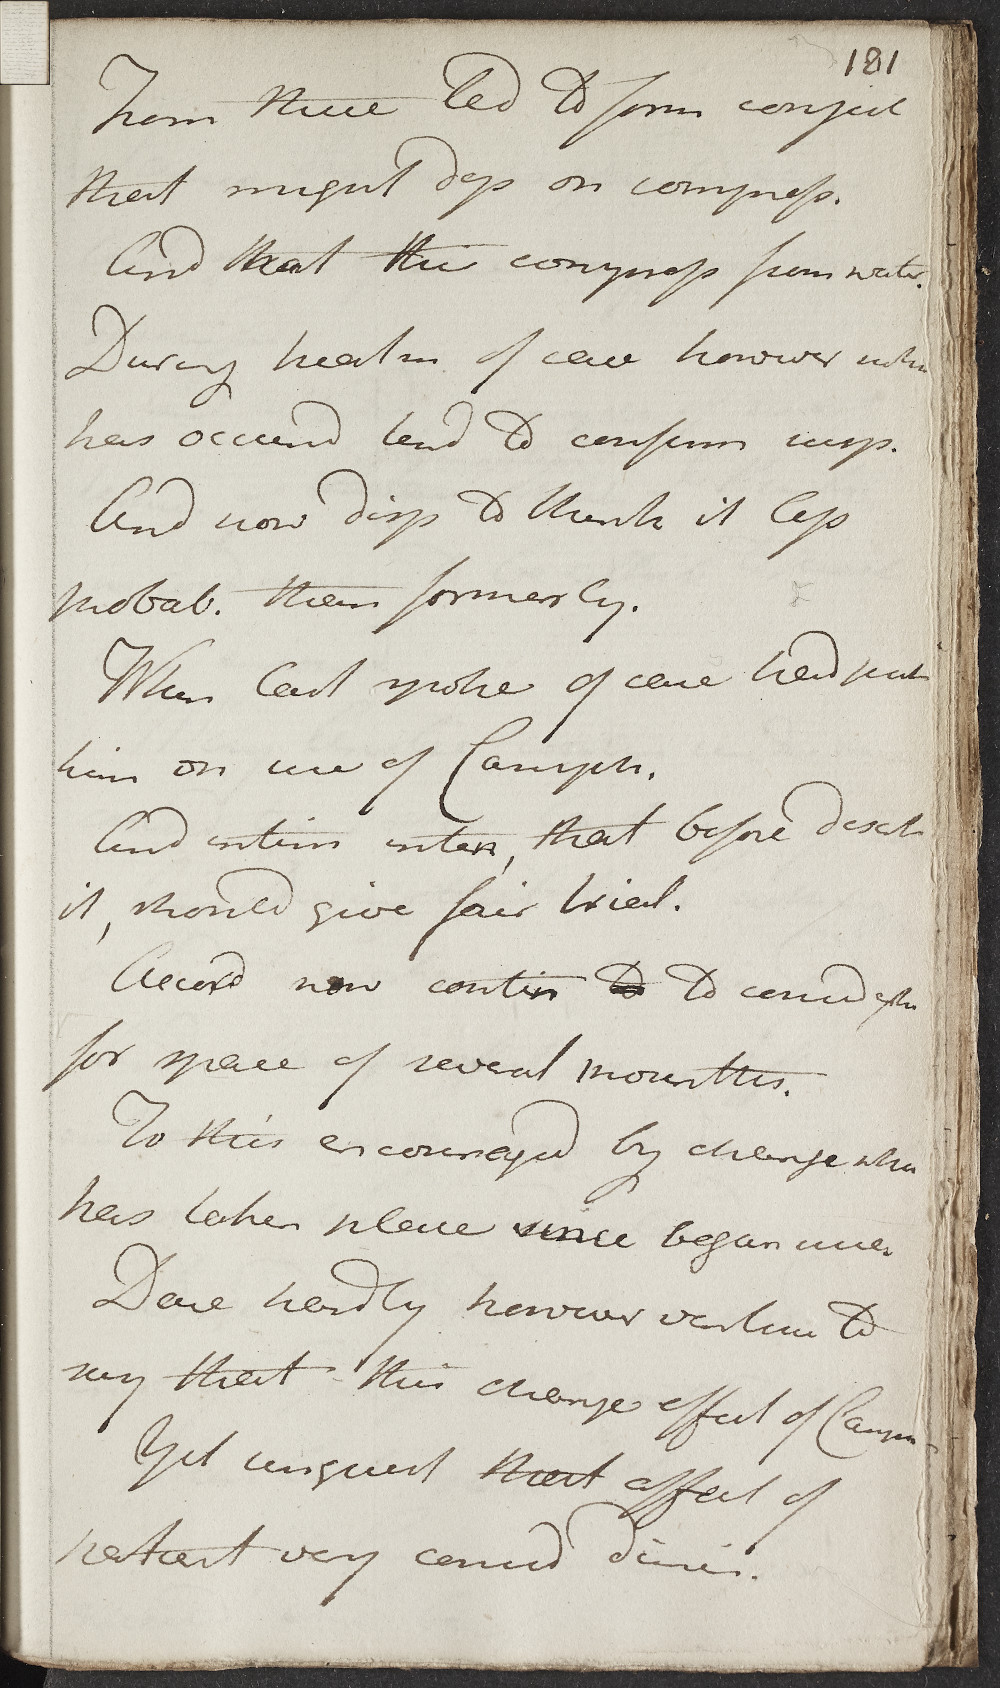 181
From these led to form conject
that might dep on compress.
And that this compress from water.
During treatm of case however whi
has occured tend to confirm susp.
And now disp to think it less
probab. than formerly.
When last spoke of case had put
him on use of Camph.
And entim enter, that before desert
it, should give fair trial.
Accord now contin to to consid
for space of several mounths.
To this encouraged by change whi
has taken place since began use.
Dare hardly however venture to
say that this change effect of Camph
Yet unquest that affect of
patient very consid dimin.